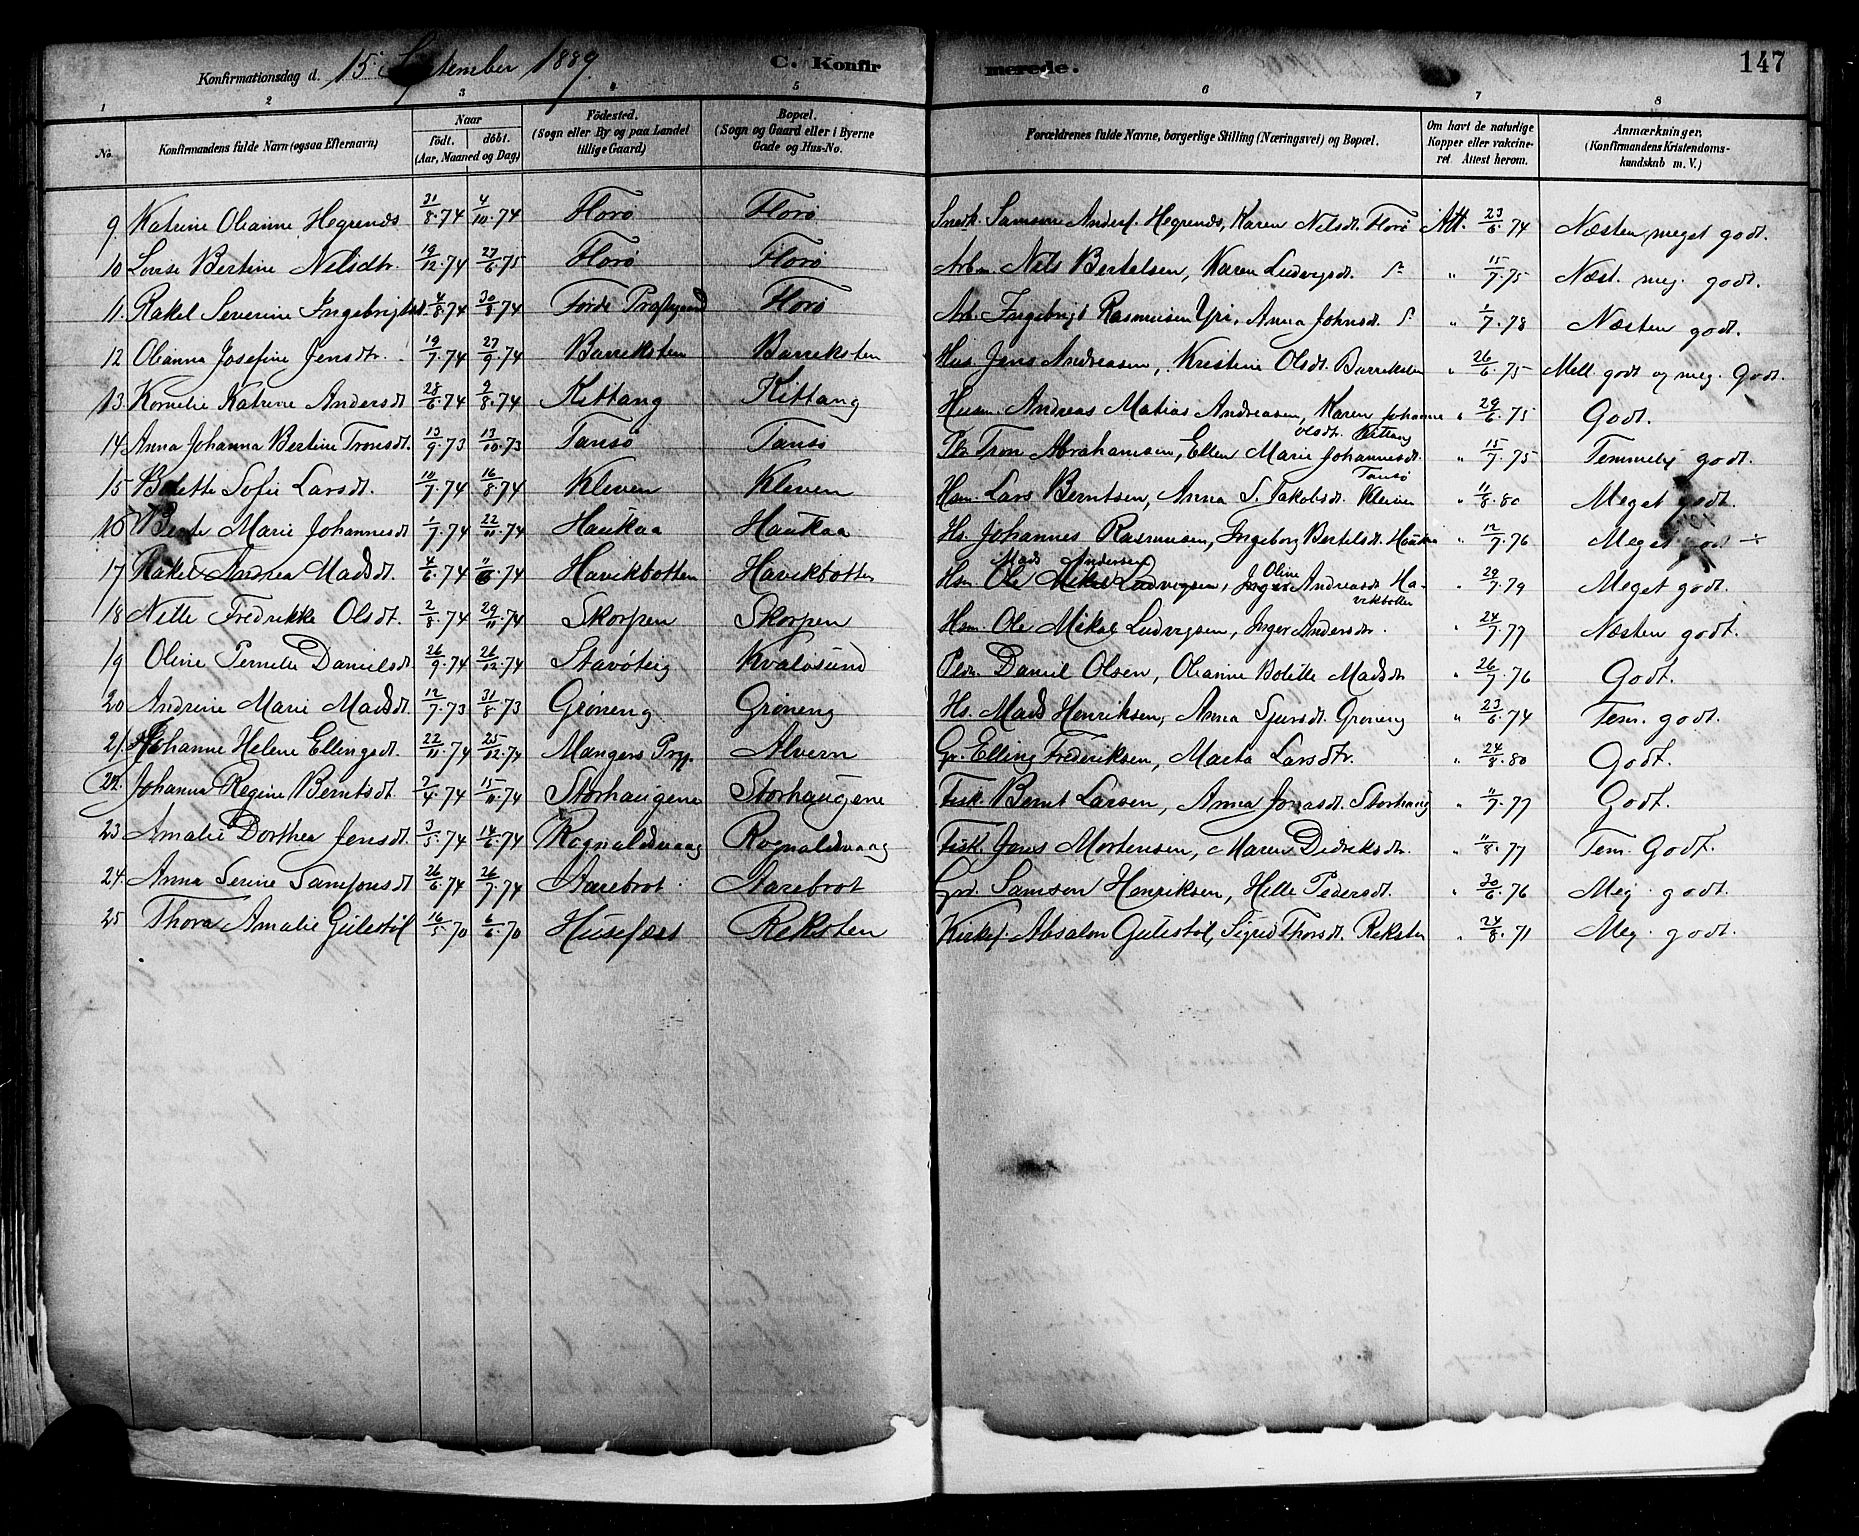 147
Konfirmationsdag d. 15 September 1889 C. Konfirmerede.
1 2 3 4 5 6 7 8
No. Konfirmandens fulde Navn (ogsaa Efternavn) Naar födt. döbt. (Aar, Maaned og Dag) Födested. (Sogn eller By og paa Landet tillige Gaard) Bopæl. (Sogn og Gaard eller i Byerne Gade og Hus-No. Forældrenes fulde Navne, borgerlige Stilling (Næringsvei) og Bopæl. Om havt de naturlige Kopper eller vaccineret. Attest herom. Anmærkninger. (Konfirmandens Kristendomskundskab m. V.)
9. Katrine Oleanne Hegrenes 31/8.74 4/10.74 Florø Florø Snedk. Samson Anders. Hegrenes, Karen Nilsdt. Florø Att. 23/6.74 Næsten meget godt.
10 Lovise Bertine Nilsdtr. 19/12.74 27/6.75 Florø Florø Arbm Nils Bertelsen, Karen Ludvigsdt. " 15/7.75 Næst. meg. godt.
11. Rakel Severine Ingebrigtsd. 4/8.74 30/8.74 Førde Præstegjeld Florø Arb. Ingebrigt Rasmusen Yri, Anna Johnsdt. " 1/7.78 Næsten godt.
12 Oleanna Josefine Jensdtr. 19/7.74 27/9.74 Barreksten Barreksten Hus. Jens Andreasen, Kristine Olsdt. Barreksten " 26/6.75 Mell. godt og meg. Godt.
13. Kornelie Katrine Andersdt 28/6.74 9/8.74 Kittang Kittang Husm. Andreas Matias Andreasen, Karen Johanne Olsdt. Kittang " 29/6.75 Godt.
14. Anna Johanna Bertine Tronsdt. 13/9.73 13/10.73 Tansø Tansø Tron Abrahamsen, Ellen Marie Johannesdt. Tansø " 15/7.75 Temmelig godt.
15 Bolette Sofie Larsdt. 10/7.74 16/8.74 Kleven Kleven Hsm. Lars Berntsen, Anna S. Jakobsdt. Kleven " 11/8.80 Meget godt.
16 Bente Marie Johannesdt 1/7.74 22/11.74 Haukaa Haukaa Hs. Johannes Rasmusen, Ingeborg Bertelsdt. Haukaa " 12/7.76 Meget godt ÷
17. Rakel Andrea Madsdt. 4/6.74 74 Havikbotten Havikbotten Hsm Mads Andersen Ole Mikal Ludvigsen, Oline Inger Andreasdt Havikbotten " 29/7.79 Meget godt.
18 Nille Fredrikke Olsdt. 2/8.74 29/11.74 Skorpen Skorpen Hsm. Ole Mikal Ludvigsen, Inger Andersdt. " 24/7.77 Næsten godt.
19 Oline Pernelle Danielsdt 26/9.74 26/12.74 Stavøteig Kvaløsund Daniel Olsen, Oleanne Bolette Madsdt " 26/7.76 Godt.
20 Andrine Marie Madsdt. 12/7.73 31/8.73 Grøneng Grøneng Hs. Mads Henriksen, Anna Sjursdt. Grøneng " 23/6.74 Tem. godt.
21. Johanne Helene Ellingsdt. 22/11.74 25/12.74 Mangers Prgj. Alvern Gr. Elling Frederiksen, Marta Larsdtr. " 24/8.80 Godt.
22. Johanna Regine Berntsdt. 2/4.74 15/11.74 Storhaugene Storhaugene Fisk. Bernt Larsen, Anna Jonasdt. Storhaug " 11/7.77 Godt.
23 Amalie Dorthea Jensdt. 3/5.74 14/6.74 Rognaldsvaag Rognaldsvaag Fisk. Jens Mortensen, Maren Didriksdtr. " 11/8.77 Tem. Godt.
24. Anna Serine Samsonsdt 26/6.74 26/7.74 Aarebrot Aarebrot Grd. Samson Henriksen, Helle Pedersdt. " 30/6.76 Meg. godt.
25 Thora Amalie Gulestøl 16/5.70 6/6.70 Husefæst Reksten Kirkes. Absalon Gulestøl, Sigrid Thorsdt. Reksten " 24/8.71 Meg. godt.